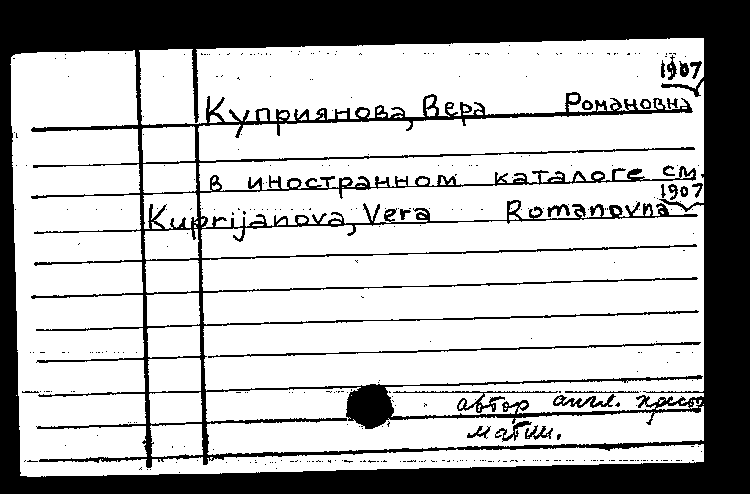 1907
Куприянова, Вера Романовна
в иностранном каталоге см.
1907
Kuprijanova, Vera Romanovna
автор англ. хресто
матии.